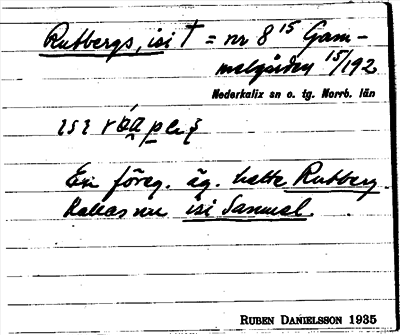 Rutbergs, isi † = nr 8 15 Gam-
melgården 15/192
Nederkalix sn o. tg. Norrb. län
En föreg. äg. hette Rutberg.
Kallas nu isi Samuel.
RUBEN DANIELSSON 1935